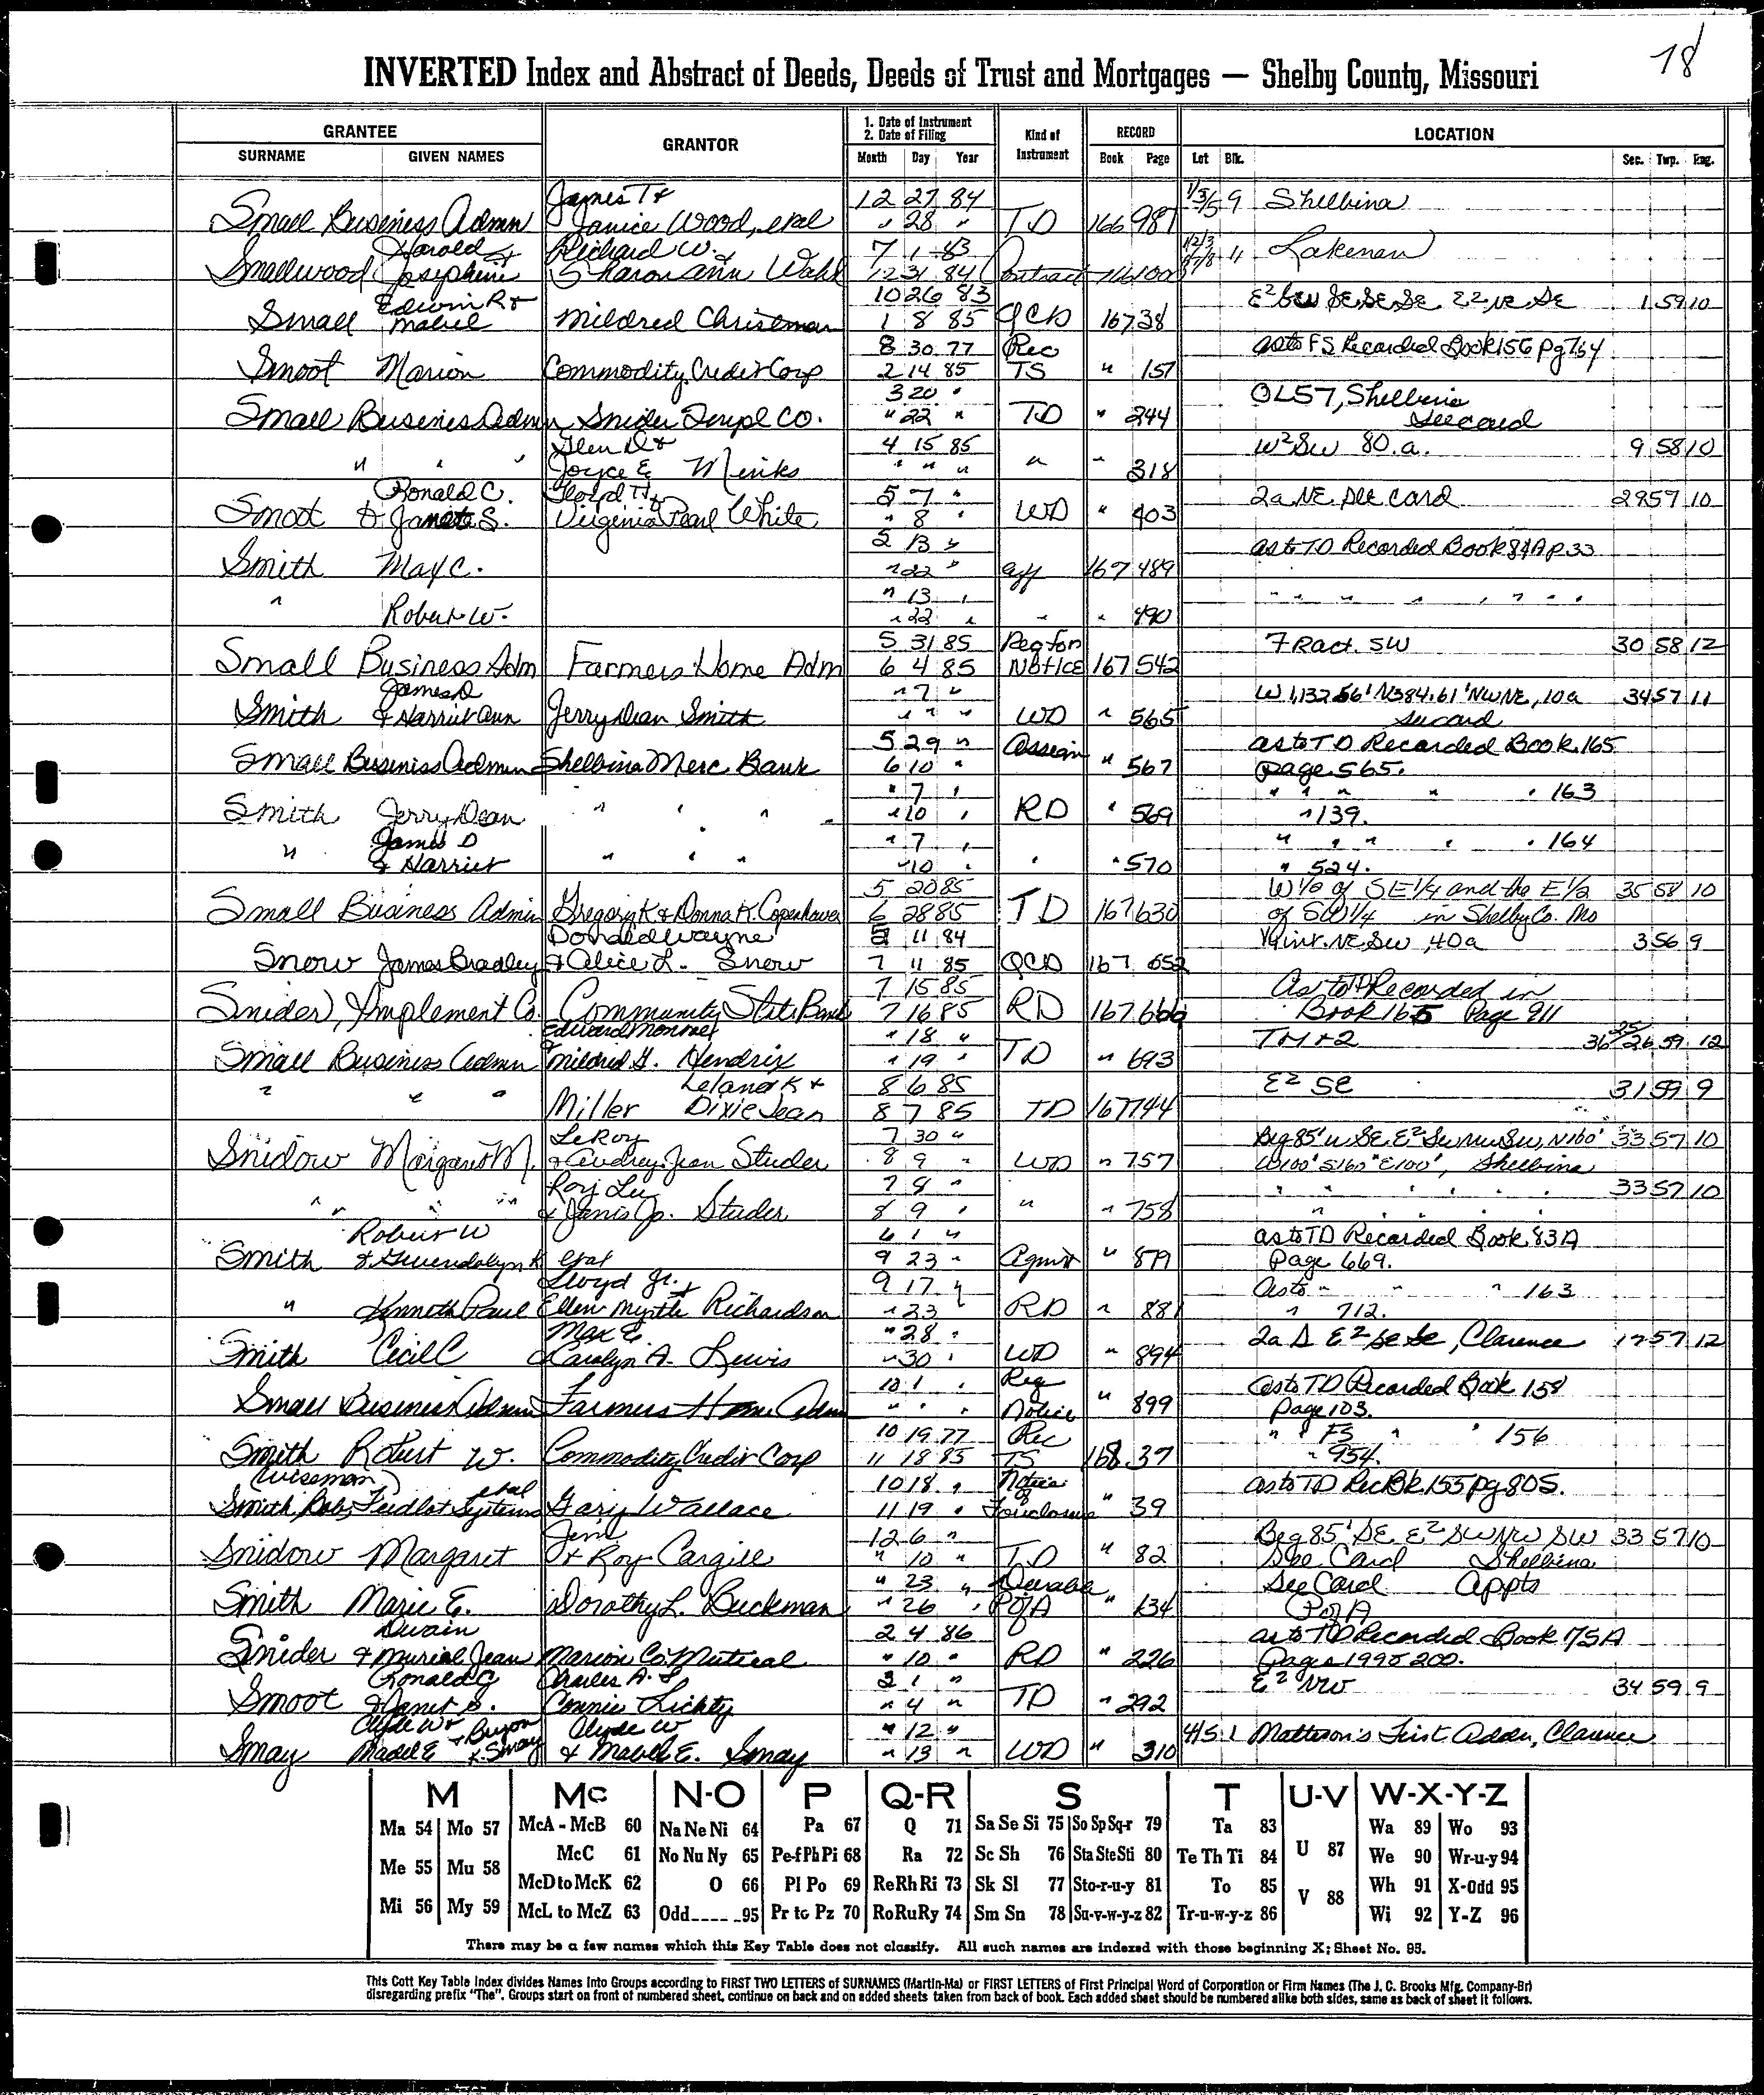 78
INVERTED Index and Abstract of Deeds, Deeds of Trust and Mortgages — Shelby County, Missouri
GRANTEE GRANTOR 1. Date of Instrument 2. Date of Filing Kind of Instrument RECORD LOCATION
SURNAME GIVEN NAMES Month Day Year Book Page Lot Blk. Sec. Twp. Rng.
James T & 12 27 84 1/3/5 9 Shelbina
Small Business Admn Janice Wood, etal " 28 " TD 166 981
Harold & Richard W. & 7 1 83 11 Lakenan
Smallwood Josephine Sharon Ann Wahl 12 31 84 Contract
Edwin R & 10 26 83 1 59 10
Small Mabel Mildred Christman 1 8 85 QCD 167 38
8 30 77 Rec as to FS Recorded Book 156 pg 764
Smoot Marion Commodity Credit Corp 2 14 85 TS " 157
3 20 " OL57, Shelbina
Small Business Admn Snider Impl Co. " 22 " TD " 244 See card
Glen D & 4 15 85 W2SW 80.a. 9 58 10
" " " Joyce E Minks " " " " " 318
Ronald C. Floyd H & 5 7 " 2a NE see card 29 57 10
Smoot & Janet S. Virginia Pearl White " 8 " WD " 403
5 13 " as to TD Recorded Book 84A p 33
Smith Max C. " 22 " aff 167 489
" 13 " " " " " " " " "
" Robert W. " 22 " " " 490
5 31 85 Req for Fract. SW 30 58 12
Small Business Adm Farmers Home Adm 6 4 85 NOTICE 167 542
James D " 7 " W 1,132.56' N384.61' NWNE, 10a 34 57 11
Smith & Harriet Ann Jerry Dean Smith " " " WD " 565 see card
5 29 " Assign as to TD Recorded Book 165
Small Business Admn Shelbina Merc Bank 6 10 " " 567 page 565.
" 7 " " " " " " 163
Smith Jerry Dean " " " " 10 " RD " 569 " 139.
James D " 7 " " " " " " 164
" & Harriet " " " " 10 " " " 570 " 524.
5 20 85 W1/2 of SE1/4 and the E1/2 35 58 10
Small Business Admin Gregory K & Donna K. Copenhaver 6 28 85 TD 167 630 of SW1/4 in Shelby Co. Mo
Donald Wayne 11 84 int. NE SW, 40a 3 56 9
Snow James Bradley & Alice L. Snow 7 11 85 QCD 167 652
7 15 85 As to TD Recorded in
Snider, Implement Co. Community State Bank 7 16 85 RD 167 666 Book 165 Page 911
Edward Monroe " 18 " 12
Small Business Admn & Mildred G. Hendrix " 19 " TD " 693
Leland K & 8 6 85 E2 SE 31 59 9
" " " Miller Dixie Jean 8 7 85 TD 167 744
LeRoy 7 30 " Beg 85' N SE E2SWNWSW, N160' 33 57 10
Snidow Margaret M. & Audrey Jean Studer 8 9 " WD " 757 W100' S160' E100', Shelbina
Roy Lee 7 8 " " " " " " " 33 57 10
" " " & Janis Jo. Studer 8 9 " " " 758 " " " "
Robert W 6 1 " as to TD Recorded Book 83A
Smith & Gwendolyn K etal 9 23 " Agmt " 879 Page 669.
Lloyd Jr. & 9 17 " As to " " " 163
" Kenneth Paul Ellen Myrtle Richardson " 23 " RD " 881 " 712.
Max E " 28 " 2a E2 SE SE, Clarence 17 57 12
Smith Cecil C & Carolyn A. Lewis " 30 " WD " 894
10 1 " Req as to TD Recorded Book 158
Small Business Admn Farmers Home Adm " " " Notice " 899 Page 103.
10 19 77 Rec " " FS " " 156
Smith Robert W. Commodity Credit Corp 11 18 85 TS 168 37 " 954.
(Wiseman) etal 10 18 " Notice of as to TD Rec Bk 155 pg 805.
Smith, Bob, Feedlot Systems Gary Wallace 11 19 " Foreclosure " 39
Jim 12 6 " Beg 85' SE E2 SW NW SW 33 57 10
Snidow Margaret & Roy Cargill " 10 " TD " 82 See Card Shelbina
" 23 " Durable See Card Appts
Smith Marie E. Dorothy L. Buckman " 26 " PofA " 134 PofA
Dwain 2 4 86 as to TD Recorded Book 75A
Snider & Murial Jean Marion Co. Mutual " 10 " RD " 226 Pages 199 & 200.
Ronald C Charles A. & 3 1 " E2 NW 34 59 9
Smoot & Janet S. Connie Lichty " 4 " TD " 292
Clyde W & & Bryon Clyde W " 12 " 4/5 1 Matteson's First Addn, Clarence
Smay Mabel E K. Smay & Mabel E. Smay " 13 " WD " 310
M Mc N-O P Q-R S T U-V W-X-Y-Z
Ma 54 Mo 57 McA - McB 60 Na Ne Ni 64 Pa 67 Q 71 Sa Se Si 75 So Sp Sq-r 79 Ta 83 U 87 Wa 89 Wo 93
Me 55 Mu 58 McC 61 No Nu Ny 65 Pe-f Ph Pi 68 Ra 72 Sc Sh 76 Sta Ste Sti 80 Te Th Ti 84 We 90 Wr-u-y 94
McD to McK 62 O 66 Pl Po 69 Re Rh Ri 73 Sk Sl 77 Sto-r-u-y 81 To 85 V 88 Wh 91 X-Odd 95
Mi 56 My 59 McL to McZ 63 Odd----- 95 Pr to Pz 70 Ro Ru Ry 74 Sm Sn 78 Su-v-w-y-z 82 Tr-u-w-y-z 86 Wi 92 Y-Z 96
There may be a few names which this Key Table does not classify. All such names are indexed with those beginning X; Sheet No. 95.
This Cott Key Table Index divides Names Into Groups according to FIRST TWO LETTERS of SURNAMES (Martin-Ma) or FIRST LETTERS of First Principal Word of Corporation or Firm Names (The J. C. Brooks Mfg. Company-Br)
disregarding prefix "The". Groups start on front of numbered sheet, continue on back and on added sheets taken from back of book. Each added sheet should be numbered alike both sides, same as back of sheet it follows.